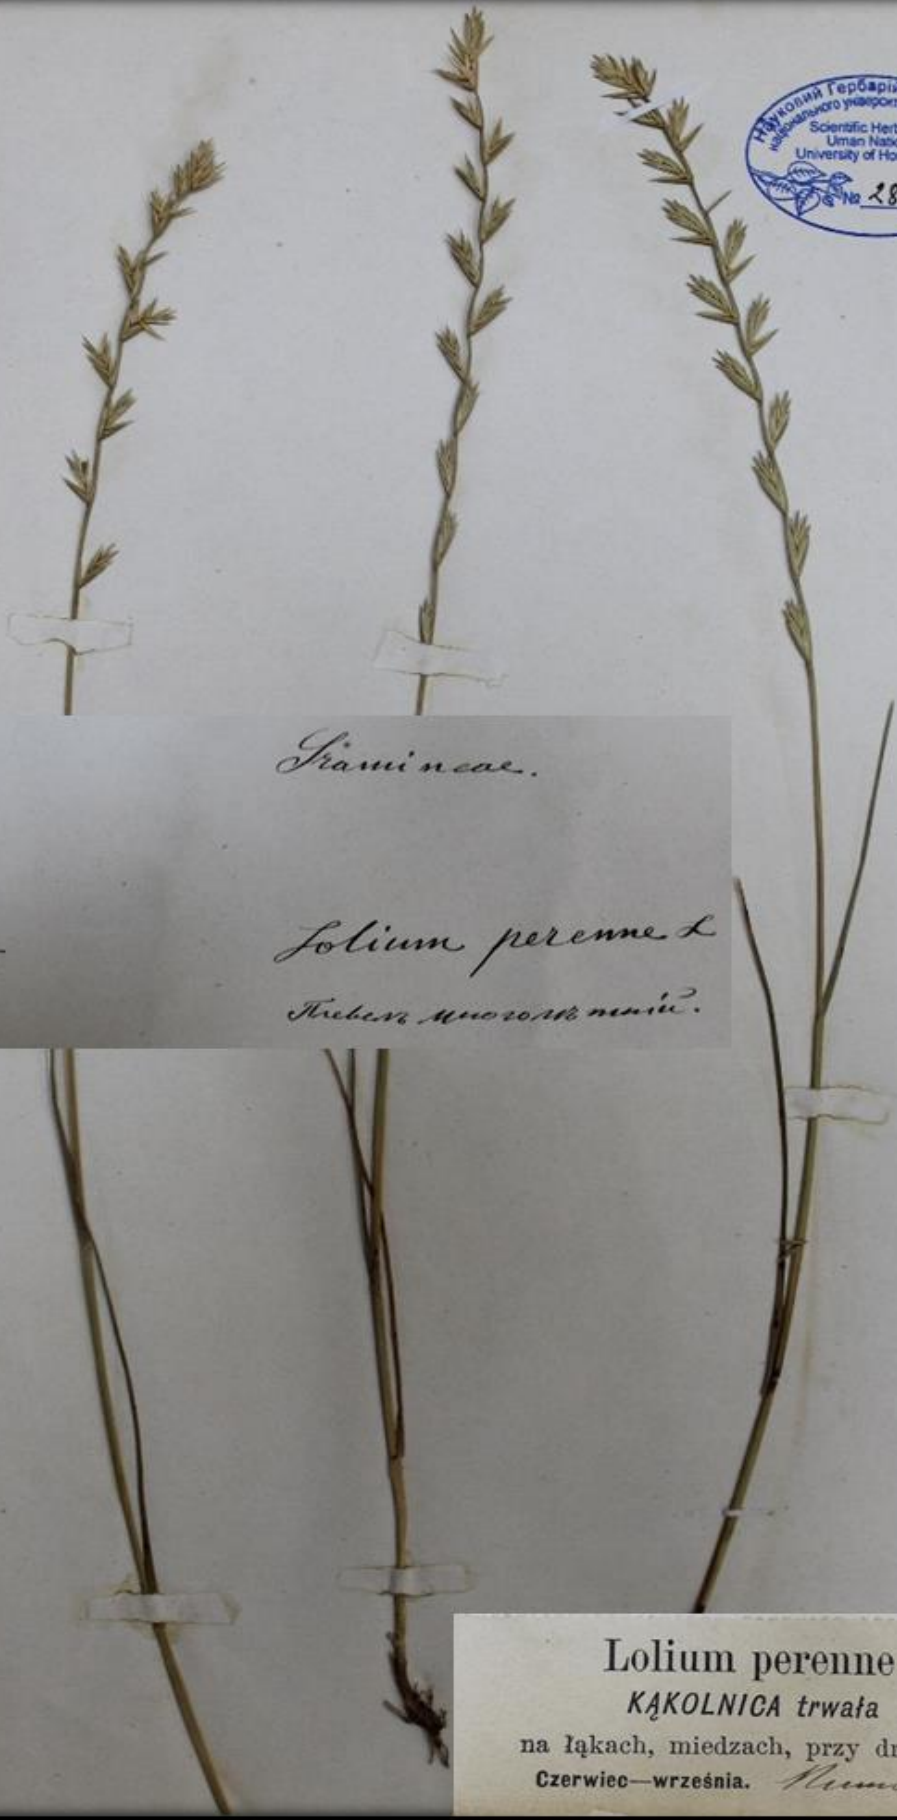 Науковий Гербарій
національного універси
Scientific Herb
Uman Natio
University of Ho
№ 28
Gramineae.
Lolium perenne L
Плевелъ многолѣтній.
Lolium perenne
KĄKOLNICA trwała
na łąkach, miedzach, przy dr
Czerwiec—września.